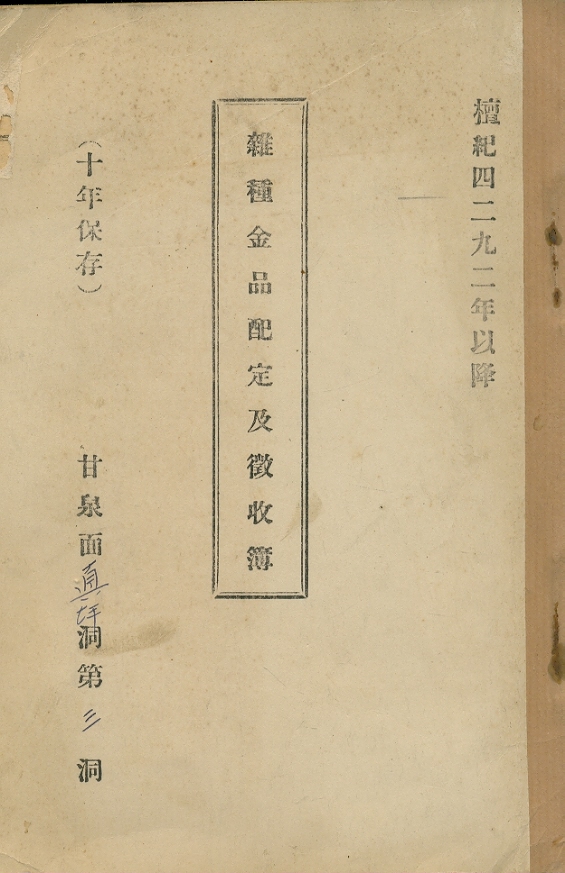 檀紀四二九二年以降
雜種金品配定及徵收簿
(十年保存)
甘泉面眞坪洞第三洞